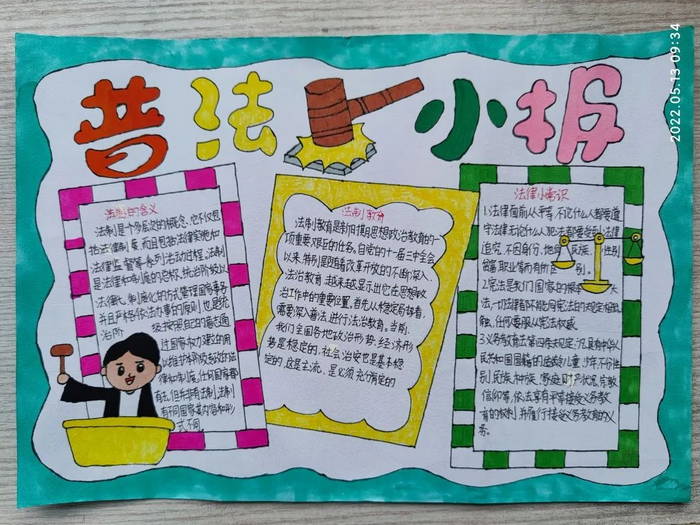 2022.05.13 09:34
普法小报
法制的含义
法制是个多层次的概念,它不仅包
括法律制度,而且包括法律实施和
法律监督等一系列活动过程,法制
是法律和制度的总称,统治阶级以
法律化、制度化的方式管理国家事务
并且严格依法办事的原则,也是统
治阶级按照自己的意志通
过国家权力建立的用
以维护本阶级专政的法
律和制度,任何国家都
有法,但并非有法制,法制
有不同国家其内容和形
式不同
法制教育
法制教育是新时期思想政治教育的一
项重要艰巨的任务。自党的十一届三中全会
以来,特别是随着改革开放的不断深入,
法治教育越来越显示出它在思想政
治工作中的重要位置。首先从稳定局势看,
需要深入普法,进行法治教育。当前,
我们全国各地政治形势,经济形
势是稳定的,社会治安也是基本稳
定的,这是主流,是必须充分肯定的
法律小常识
1.法律面前人人平等,不论什么人都要遵
守法律无论什么人犯法都要受到法律
追究,不因身份,地位,民族,性别
信仰,职业等而有所区别。
2.宪法是我们国家的根本大
法,一切法律都不能同宪法的规定相抵
触,任何要服从宪法权威
3.义务教育法第四条规定:凡具有中华人
民共和国国籍的适龄儿童,少年,不分性
别,民族,种族,家庭财产状况,宗教
信仰等,依法享有平等接受义务教
育的权利,并履行接受义务教育的义
务。